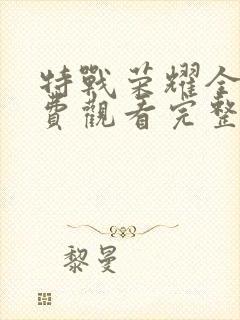 特戰荣耀全
費觀看完整
黎曼